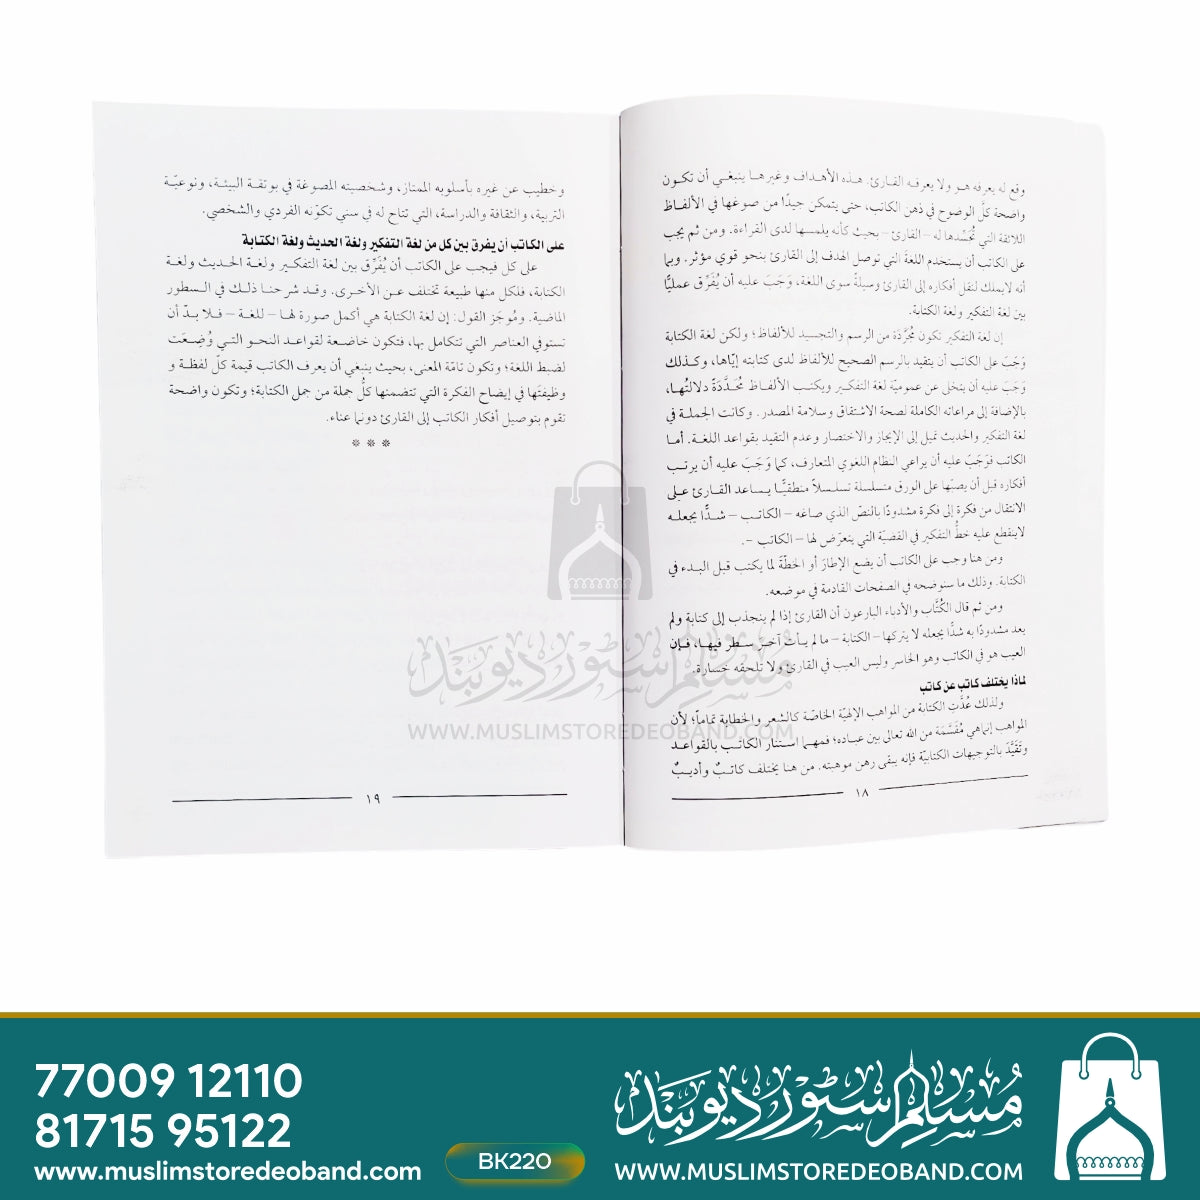 وقع له يعرفه هـو ولا يعرفـه القـارئ. هـذه الأهـداف وغيرهـا ينبغـي أن تكـون
واضحة كلَّ الوضوح في ذهن الكاتب، حتى يتمكن جيدًا من صوغها في الألفـاظ
اللائقة التي تُجَسِّدها له – القارئ – بحيث كأنه يلمسها لدى القراءة. ومن ثم يجب
على الكاتب أن يستخدم اللغةَ التي توصل الهدف إلى القارئ بنحو قوي مؤثر. وبما
أنه لايملك لنقل أفكاره إلى القارئ وسيلةً سوى اللغة، وَجَبَ عليه أن يُفَرِّق عمليًّا
بين لغة التفكير ولغة الكتابة.
إن لغة التفكير تكون مُجَرَّدَة من الرسم والتجسيد للألفاظ؛ ولكن لغة الكتابة
وَجَبَ على الكاتب أن يتقيد بالرسم الصحيح للألفاظ لدى كتابته إيّاها، وكـذلك
وَجَبَ عليه أن يتخلى عن عموميّة لغة التفكـير ويكتـب الألفـاظ مُحَـدَّدَةً دلالتُهـا،
بالإضافة إلى مراعاته الكاملة لصحة الاشتقاق وسلامة المصدر. وكانت الجملة في
لغة التفكير والحديث تميل إلى الإيجاز والاختصار وعدم التقيد بقواعد اللغـة. أمـا
الكاتب فوَجَبَ عليه أن يراعي النظام اللغوي المتعارف، كما وَجَبَ عليه أن يرتـب
أفكاره قبل أن يصبّها على الورق متسلسلة تسلـسلاً منطقيًّـا يـساعد القـارئ عـلى
الانتقال من فكرة إلى فكرة مشدودًا بالنصّ الذي صاغه – الكاتـب – شـدًّا يجعلـه
لاينقطع عليه خطُّ التفكير في القضيّة التي يتعرّض لها – الكاتب -.
ومن هنا وجب على الكاتب أن يضع الإطارَ أو الخطّةَ لما يكتب قبل البـدء في
الكتابة. وذلك ما سنوضحه في الصفحات القادمة في موضعه.
ومن ثم قال الكُتَّاب والأدباء البارعون أن القارئ إذا لم ينجذب إلى كتابة ولم
يعد مشدودًا به شدًّا يجعله لا يتركها – الكتابة – ما لم يـأت آخـرُ سـطر فيهـا، فـإن
العيب هو في الكاتب وهو الخاسر وليس العيب في القارئ ولا تلحقه خسارة.
لماذا يختلف كاتب عن كاتب
ولذلك عُدَّتِ الكتابة من المواهب الإلهيّة الخاصّة كالشعر والخطابة تماماً؛ لأن
المواهب إنما هي مُقَسَّمَة من الله تعالى بين عباده؛ فمهـما اسـتنار الكاتـب بالقواعـد
وتَقَيَّدَ بالتوجيهات الكتابيّة فإنه يبقى رهن موهبته. من هنا يختلف كاتبٌ وأديـبٌ
١٨
وخطيب عن غيره بأسلوبه الممتاز، وشخصيته المصوغة في بوتقـة البيئـة، ونوعيّـة
التربية، والثقافة والدراسة، التي تتاح له في سني تكوّنه الفردي والشخصي.
على الكاتب أن يفرق بين كل من لغة التفكير ولغة الحديث ولغة الكتابة
على كل فيجب على الكاتب أن يُفَرِّق بين لغة التفكـير ولغـة الحـديث ولغـة
الكتابة، فلكل منها طبيعة تختلف عـن الأخـرى. وقـد شرحنـا ذلـك في الـسطور
الماضية. ومُوجَز القول: إن لغة الكتابة هي أكمل صورة لهـا – للغـة – فـلا بـدّ أن
تستوفي العناصر التي تتكامل بها، فتكون خاضـعة لقواعـد النحـو التـي وُضِـعَت
لضبط اللغة؛ وتكون تامّة المعنى، بحيث ينبغي أن يعرف الكاتب قيمة كلّ لفظـة و
وظيفتَها في إيضاح الفكرة التي تتضمنها كلُّ جملة من جمل الكتابة؛ وتكون واضحة
تقوم بتوصيل أفكار الكاتب إلى القارئ دونما عناء.
* * *
١٩
مُسلم سٹور دیوبند
WWW.MUSLIMSTOREDEOBAND.COM
77009 12110
81715 95122
www.muslimstoredeoband.com
BK220
مُسلم سٹور دیوبند
WWW.MUSLIMSTOREDEOBAND.COM